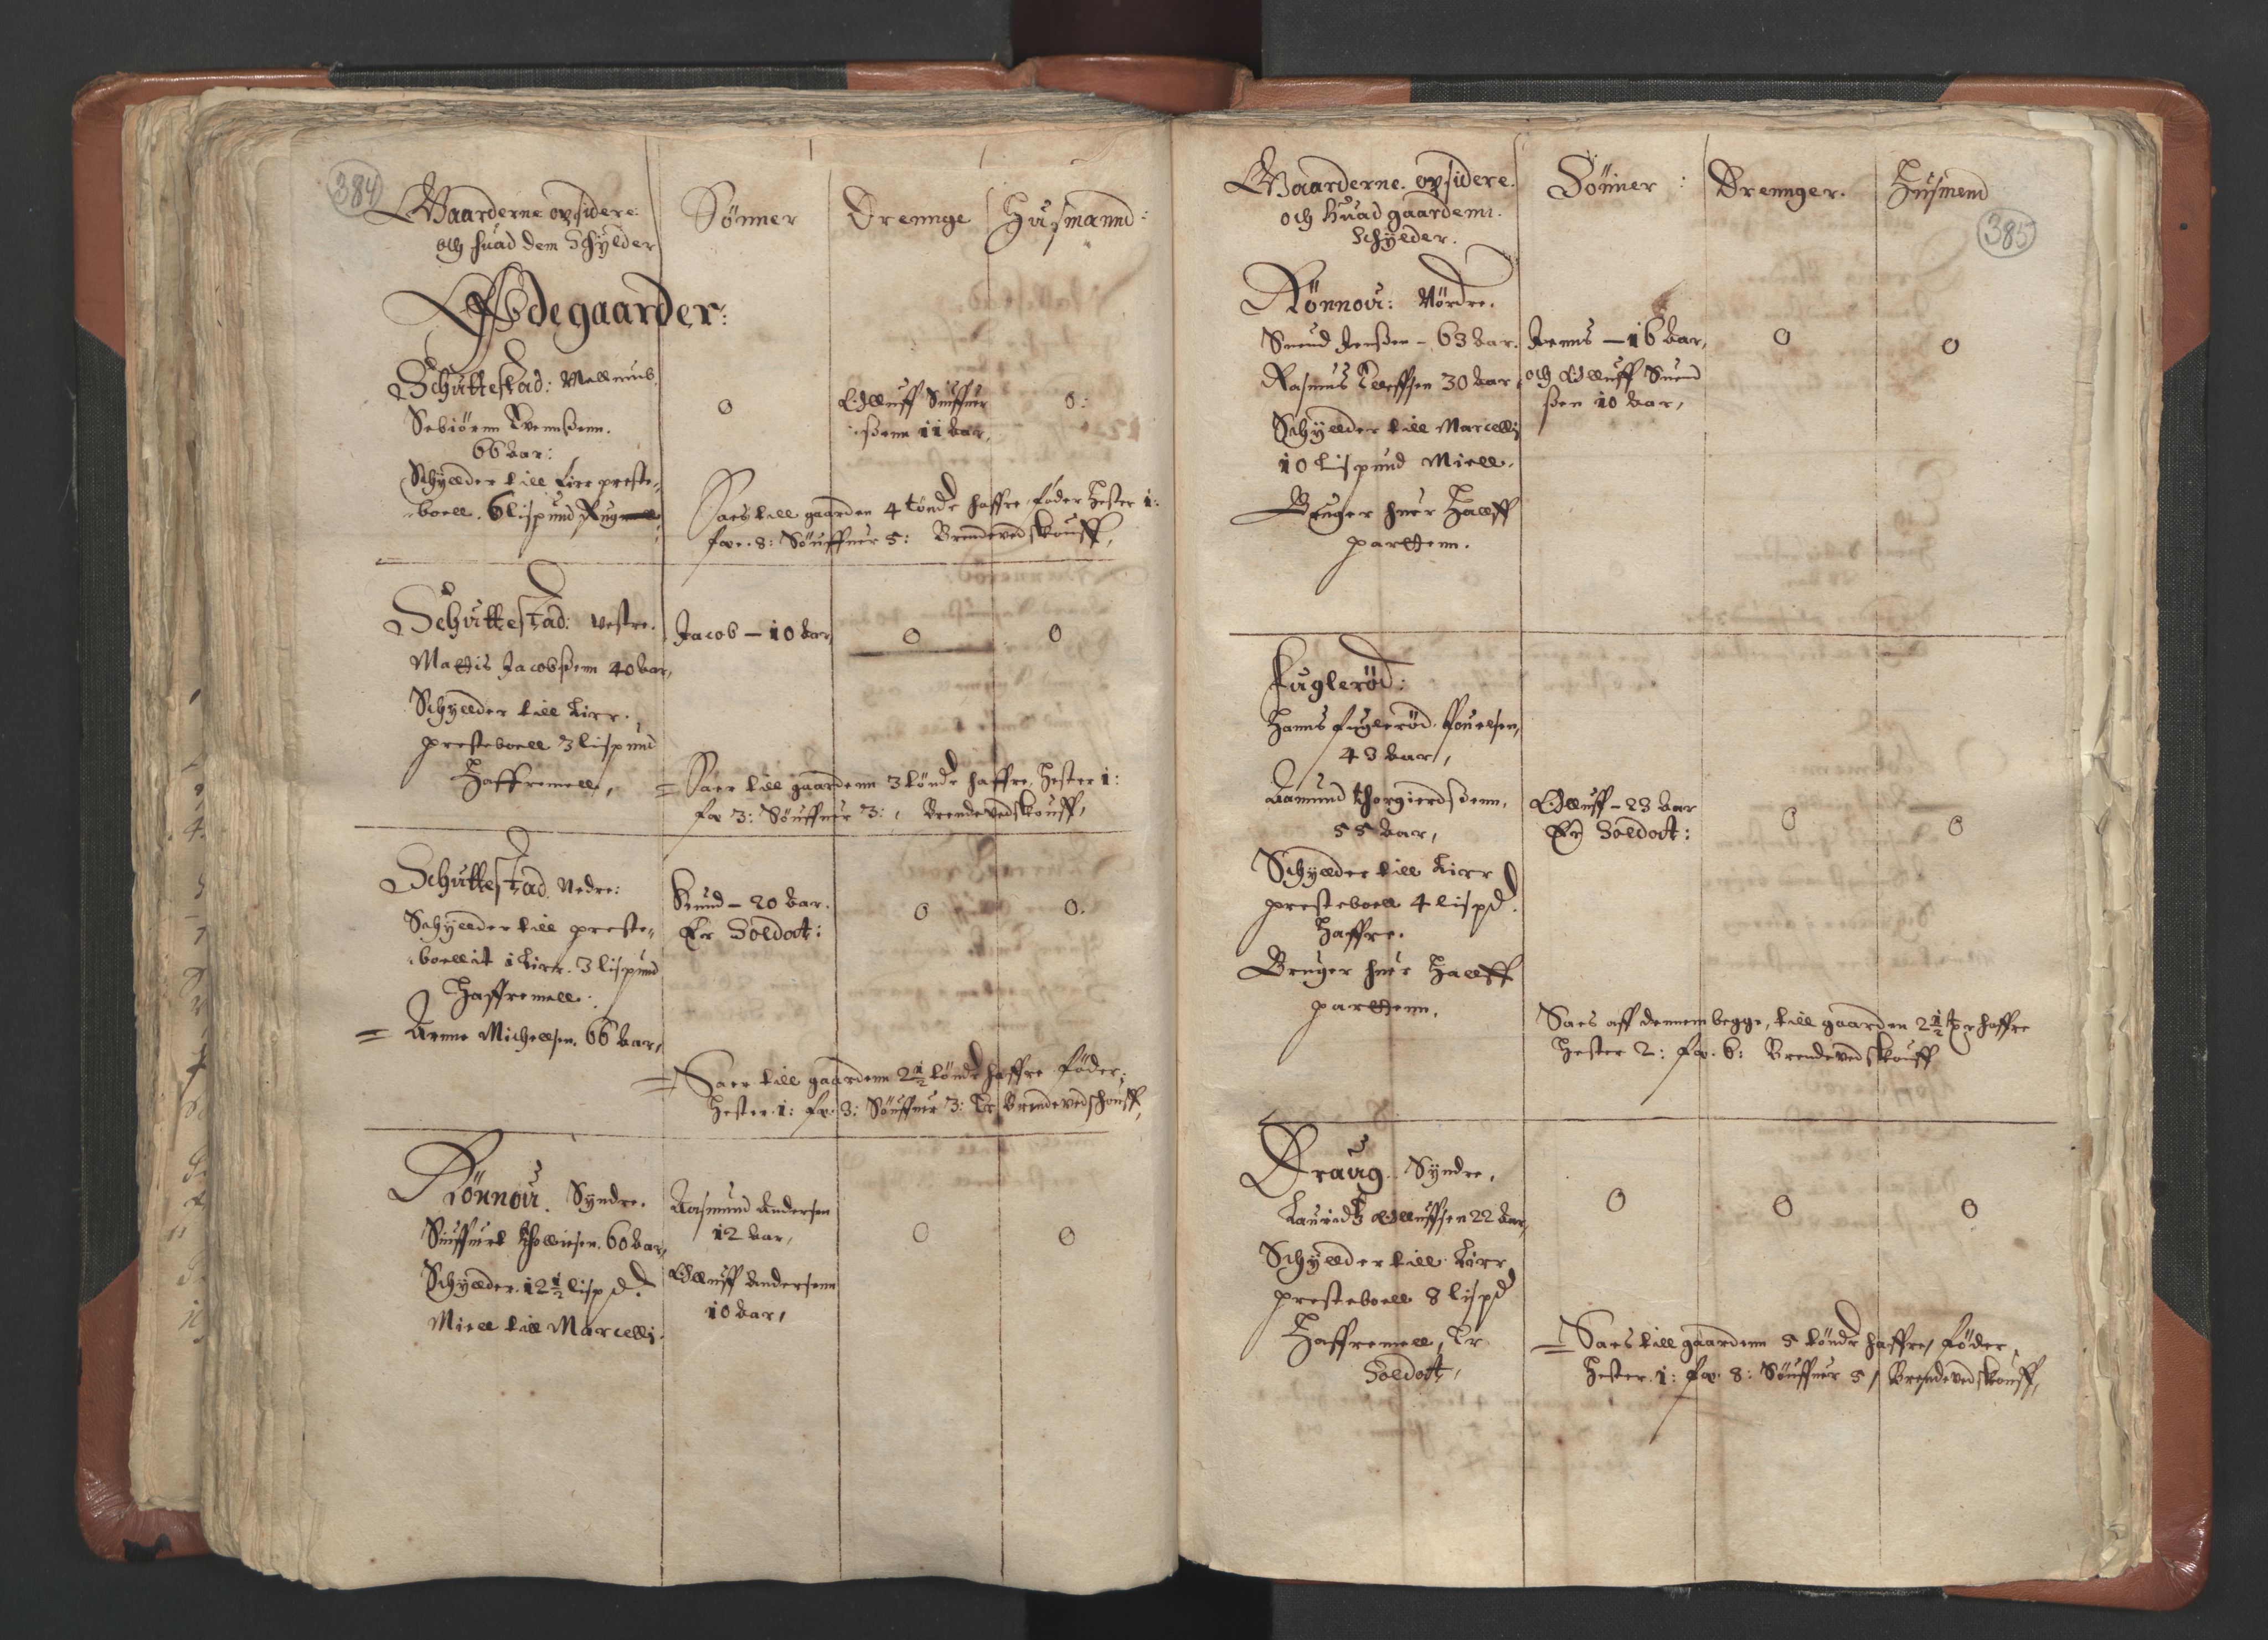 384
Gaarderne opsidere:
och huad dem Schylder
Sønner
Drennge
Husmannd:
Ødegaarder:
Schuttestad: Mellemb.
Sebiørnn Suennßenn.
66 aar:
Schyllder till Lier preste-
boell. 6 lispund Rugmell,
0
Olluff Siuffuer
ßenn 11 aar,
0:
Saes till gaarden 4 tønde haffre føder Hester 1:
fæ. 8: Søuffuer 5: Brendeved skouff,
Schuttestad: vestre.
Mattis Jacobßenn 40 aar,
Schyllder till Lier.
presteboell 3 lispund
Haffremell,
Jacob – 10 aar
0
0
= Saer till gaardenn 3 tønde haffre, Hester 1:
fæ 3: Søuffuer 3: , Brendevedskouff,
Schuttestad. Nedre:
Schyllder till preste-
boellit i Lier. 3 lispund
Haffremell:
= Arnne Michellsen. 66 aar,
Knud – 20 aar.
Er Soldat:
0
0.
= Saer till gaardenn 2 1/2 tønde haffre føder,
Hester. 1: fæ. 3: Søuffuer 3: Er Brendevedschouff,
Rønnou. Syndre.
Siuffuert Thollersen. 60 aar,
Schyllder. 12 1/2 lispd.
Miell till Marcellj.
Aasmund Andersen
12 aar,
Olluff Andersenn
10 aar,
0
0
385
Gaarderne opsidere.
och huad gaardenn.
Schyllder.
Sønner :
Drennger.
Husmend
Rønnou: Nørdre.
Suend Jenßen – 63 aar.
Rasmus Elleffsen 30 aar,
Schyellder till Marcellj
10 Lispund Miell.
Bruger huer Hallff
parttenn.
Jenns – 16 aar,
och Olluff Suend
ßen 10 aar,
0
0
Fuglerød:
Hanns fuglerød. Pouelsen,
43 aar,
Aamund Thorgierdßenn,
55 aar,
Schyllder till Lier
presteboell 4 lispd.
Haffre.
Bruger huer Hallff
parttenn.
Olluff – 23 aar
Er Soldat:
0
0
Saes aff dennem begge, till gaarden 2 1/2 tdr haffre
Hester 2: fæ. 6: Brendeved skouff
Draug. Syndre,
Lauridtz Olluffsen 22 aar,
Schyllder till Lier
presteboell 8 lispd
Haffremell, Er
Soldatt,
0
0
0
= Saes till gaardenn 5 tønde haffre, føder,
Hester. 1: fæ. 8: Søuffuer 5 , Brendeved skouff,